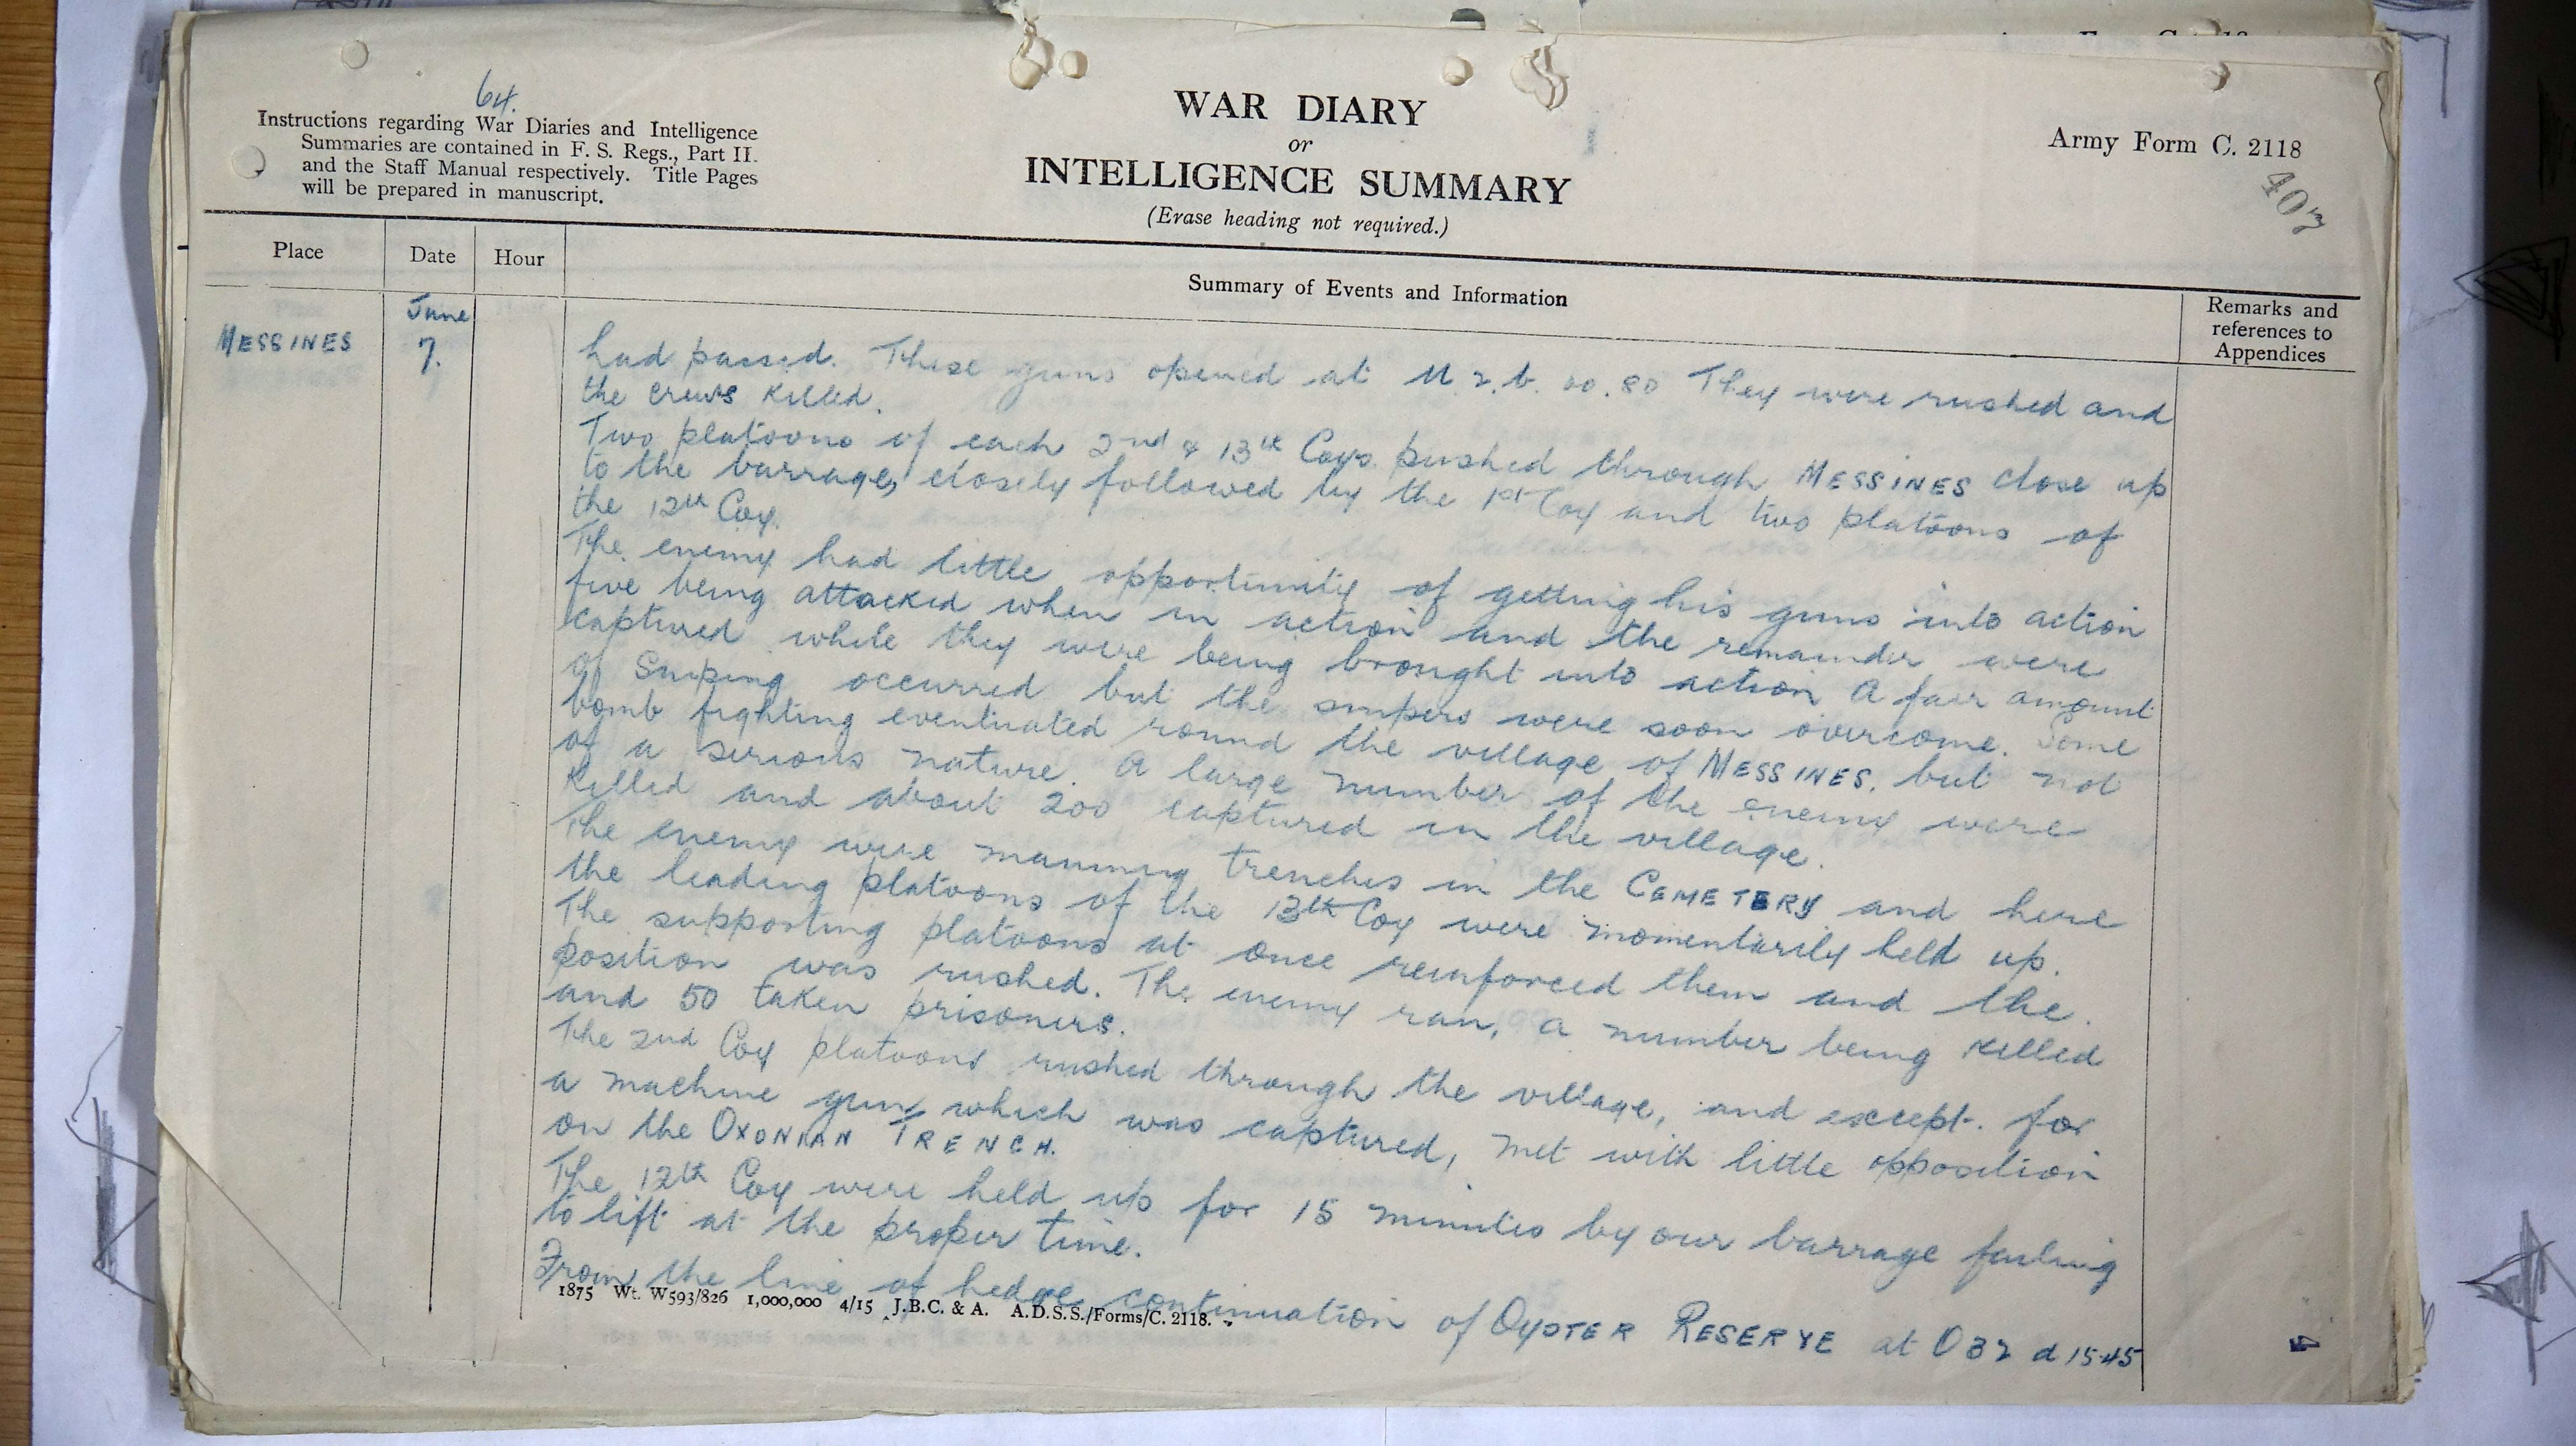 64.
Instructions regarding War Diaries and Intelligence
Summaries are contained in F. S. Regs., Part II.
and the Staff Manual respectively. Title Pages
will be prepared in manuscript.
WAR DIARY
or
INTELLIGENCE SUMMARY
(Erase heading not required.)
Army Form C. 2118
407
Place
Date
Hour
Summary of Events and Information
Remarks and
references to
Appendices
MESSINES
June
7.
had passed. These guns opened at U 2.b. 00.80 They were rushed and
the crews killed.
Two platoons of each 2nd & 13th Coys. pushed through MESSINES close up
to the barrage, closely followed by the 1st Coy and two platoons of
the 12th Coy.
The enemy had little opportunity of getting his guns into action
five being attacked when in action and the remainder were
captured while they were being brought into action A fair amount
of Sniping occurred but the snipers were soon overcome. Some
bomb fighting eventuated round the village of MESSINES, but not
of a serious nature. A large number of the enemy were
killed and about 200 captured in the village.
The enemy were manning trenches in the CEMETERY and here
the leading platoons of the 13th Coy were momentarily held up.
The supporting platoons at once reinforced them and the
position was rushed. The enemy ran, a number being killed
and 50 taken prisoners.
The 2nd Coy platoons rushed through the village, and except for
a machine gun which was captured, met with little opposition
on the OXONIAN TRENCH.
The 12th Coy were held up for 15 minutes by our barrage failing
to lift at the proper time.
From the line of hedge continuation of OYSTER RESERVE at O 32 d 15.45
1875 Wt. W593/826 1,000,000 4/15 J.B.C. & A. A.D.S.S./Forms/C. 2118.